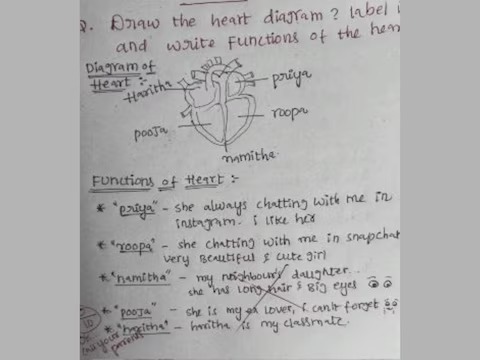 Q. Draw the heart diagram? Label
and write Functions of the hear
Diagram of
Heart :-
Haritha
priya
pooja
roopa
namitha
Functions of Heart :-
* "priya" - she always chatting with me in
instagram. i like her
* "roopa" - she chatting with me in snapchat
very Beautiful & cute girl
* "namitha" - my neighbour's daughter..
she has long hair & Big eyes
* "pooja" - she is my ex lover, i can't forget
* "haritha" - haritha is my classmate.
10
your
parents